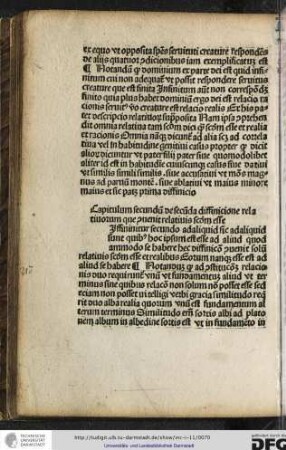 ex equo vt opposita spēs seruituti creature respondēs
de aliis quatuor ɔdicionibus iam exemplificatū est
¶ Notandū ꝙ dominium ex parte dei est quid infi-
nitum cui non adequaꝶ vt possit respondere seruitus
creature que est finita Infinitum autē non correspōdꝫ
finito quia plus habet dominiū ergo dei est relacio ra
cionis seruitꝰ vo creature est relacio realis Ex his pa
tet descripcio relatiuoꝝ supposita Nam ipsa ɔprehen
dit omnia relatiua tam scdm dici ꝙ scdm esse et realia
et racionis Omnia nāqꝫ dicunt᷑ ad alia scꝫ ad correla
tiua vel in habitudine genitiui casus propter qd̓ dicit᷑
filior dicimitur vt pater filii pater siue quomodolibet
aliter id est in habitudine cuiuscunqꝫ casus siue datiui
vt similis simili similis siue accusatiui vt mōs mag-
nus ad paruū montē siue ablatiui vt maius minore
maius et sic patꝫ prima diffinicio
Capitulum secundū de secūda diffinicione rela
tiuorum que ɔuenit relatiuis scdm esse
Iffiniuntur secundo adaliquid sic adaliquid
sunt quibꝰ hoc ipsum est esse ad aliud quod
ammodo se habere hec diffinicō ɔuenit soluꝫ
relatiuis scdm esse et realibus Eorum nanqꝫ esse est ad
aliud se habere ¶ Notandum ꝙ ad ɔstitucōꝫ relacio
nis duo requirunt᷑ vnū vt fundamentuꝫ aliud vt ter-
minus sine quibus relacō non solum nō possꝫ esse sed
eciam non posset intelligi verbi gracia similitudo req̄
rit duo alba realia quorum vnū est fundamentum al
terum terminus Similitudo em̄ sortis albi ad plato
nem album in albedine sortis est vt in fundamēto in
TECHNISCHE UNIVERSITÄT DARMSTADT
http://tudigit.ulb.tu-darmstadt.de/show/inc-ii-11/0070
Universitäts- und Landesbibliothek Darmstadt
DFG